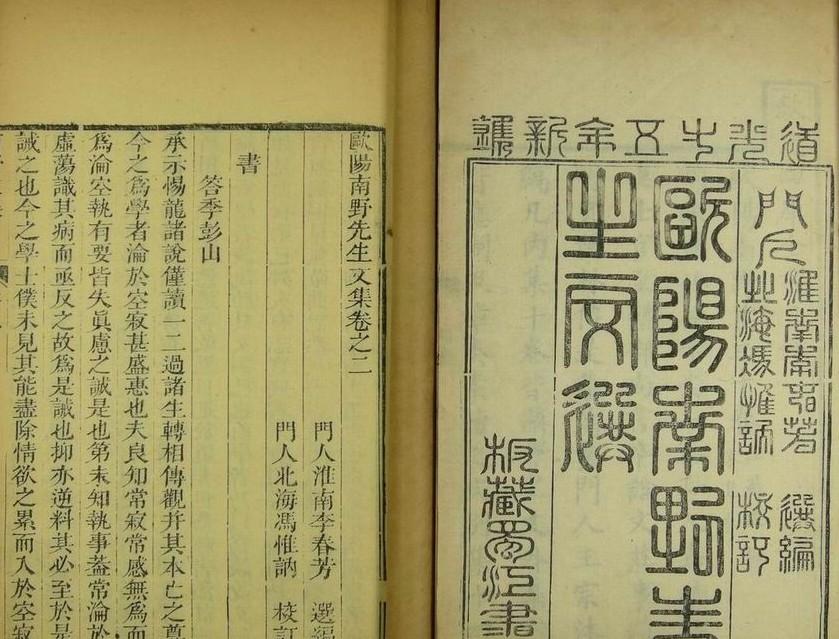 道光十五年新鐫
門人淮南李春芳 選編
北海馮惟訥 校訂
歐陽南野先
生文選
板藏蜀江書
歐陽南野先生文集卷之二
門人淮南李春芳 選編
門人北海馮惟訥 校訂
書
答季彭山
承示惕龍諸說僅讀一二過諸生轉相傳觀幷其本亡之
今之爲學者淪於空寂甚盛惠也夫良知常寂常感無爲而
爲淪空執有要皆失眞慮之誠是也第未知執事蓋常淪於
虛蕩識其病而亟反之故爲是誡也抑亦逆料其必至於是
誡之也今之學士僕未見其能盡除情欲之累而入於空寂